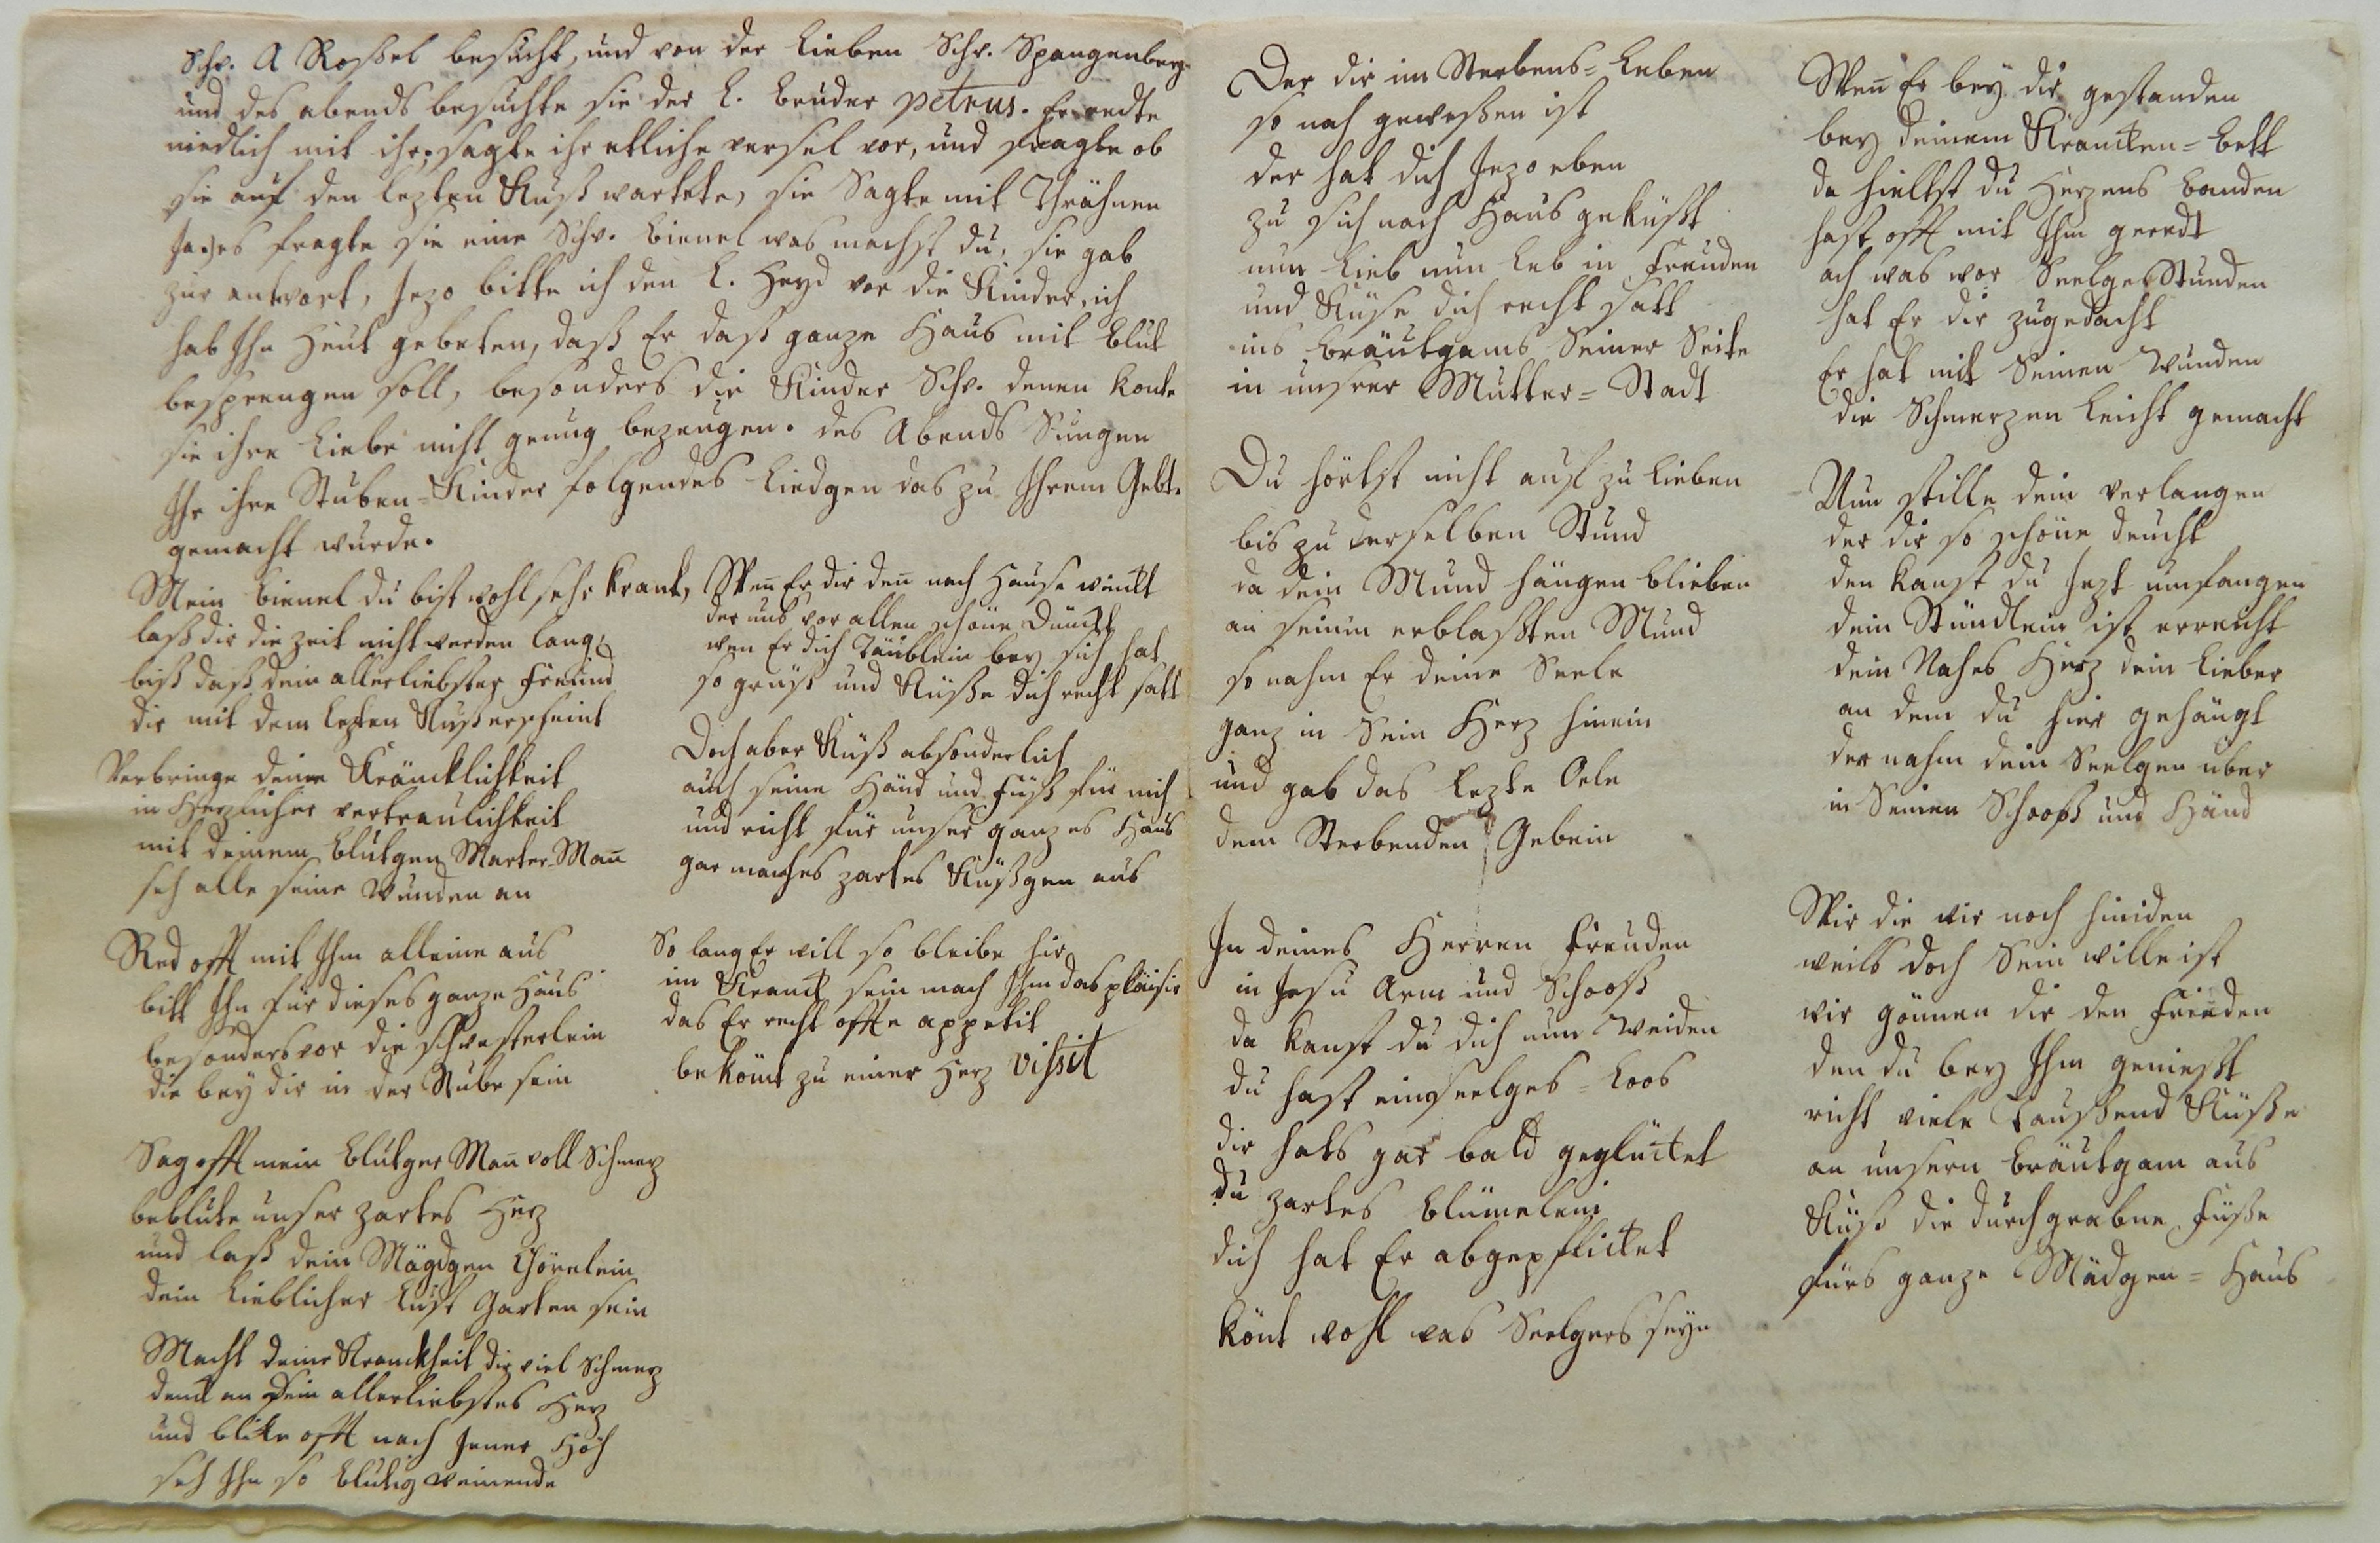 Schw. A Roßel besucht, und von der lieben Schw. Spangenberg
und des abends besuchte sie der l. bruder petrus. Er redte
niedlich mit ihr, sagte ihr etliche versel vor, und fragte ob
sie auf den lezten Kuß wartete, sie Sagte mit Thrähnen
Ja. es fragte sie eine Schw. bienel was machst du, sie gab
zur antwort, Jezo bitte ich den l. Heyd vor die Kinder, ich
hab Ihn Heut gebeten, daß Er daß ganze Haus mit blut
besprengen soll, besonders die Kinder Schw. denen konte
sie ihre liebe nicht genug bezeugen. des Abends Sungen
Ihr ihre Stuben=Kinder folgendes liedgen das zu Ihrem Gebt.
gemacht wurde.
Mein bienel du bist wohl sehr krank,
laß dir die zeit nicht werden lang,
biß daß dein allerliebster freund
dir mit dem lezten Kuß erscheint
Verbringe deine Kräncklichkeit
in Herzlicher vertraulichkeit
mit deinem blutgen Marter-Man̄
seh alle seine wunden an
Red offt mit Ihm alleine aus
bitt Ihn für dieses ganze Haus
besonders vor die schwesterlein
die bey dir in der Stube sein
Sag offt mein blutger Man̄ voll Schmerz
beblute unser zartes Herz
und laß dein Mägdgen Chörelein
dein lieblicher lust Garten sein
Macht deine Kranckheit dir viel Schmerz
denck an Dein allerliebstes Herz
und blike offt nach Jener Höh
seh Ihn so blutig weinende
Wen̄ Er dir den̄ nach Hause winckt
der uns vor allen schöne Dünckt
wen Er dich Täublein bey sich hat
so grüß und Küße dich recht satt
Doch aber Küß absonderlich
auch seine Händ und füß für mich
und richt für unser ganzes Haus
gar manches zartes Küßgen aus
So lang Er will so bleibe hir
im Kranck sein mach Ihm das pläisir
das Er recht offte appetit
bekömt zu einer Herz vissit
Der dir im Sterbens=leben
so nah geweßen ist
der hat dich Jezo eben
zu sich nach Haus geküßt
nun lieb nun leb in freuden
und Küße dich recht satt
ins bräutgams Seiner Seite
in unsrer Mutter=Stadt
Du hörtst nicht auf zu lieben
bis zu derselben Stund
da dein Mund hängen blieben
an seinen erblaßten Mund
so nahm Er deine Seele
ganz in Sein Herz hinein
und gab das lezte Oele
dem Sterbenden Gebein
In deines Herren freuden
in Jesu Arm und Schooß
da kanst du dich nun Weiden
du hast ein seelges=Loos
dir hats gar bald geglücket
du zartes blümelein
dich hat Er abgepflücket
könt wohl was Seelgers seyn
Wen̄ Er bey dir gestanden
bey deinem Krancken=bett
da hieltst du Herzens banden
hast offt mit Ihm geredt
ach was vor Seelge Stunden
hat Er dir zugedacht
Er hat mit Seinen Wunden
die Schmerzen leicht gemacht
Nun stille dein verlangen
der dir so schöne deucht
den kanst du Jezt umfangen
dein Stündlein ist erreicht
dein Nahes Herz dein lieber
an dem du hier gehängt
der nahm dein Seelgen über
in Seinen Schooß und Händ
Wir die wir noch hiniden
weils doch Sein wille ist
wir gönnen dir den frieden
den du bey Ihm genießt
richt viele taußend Küße
an unsern bräutgam aus
Küß die durchgrabne füße
fürs ganze Mädgen=Haus